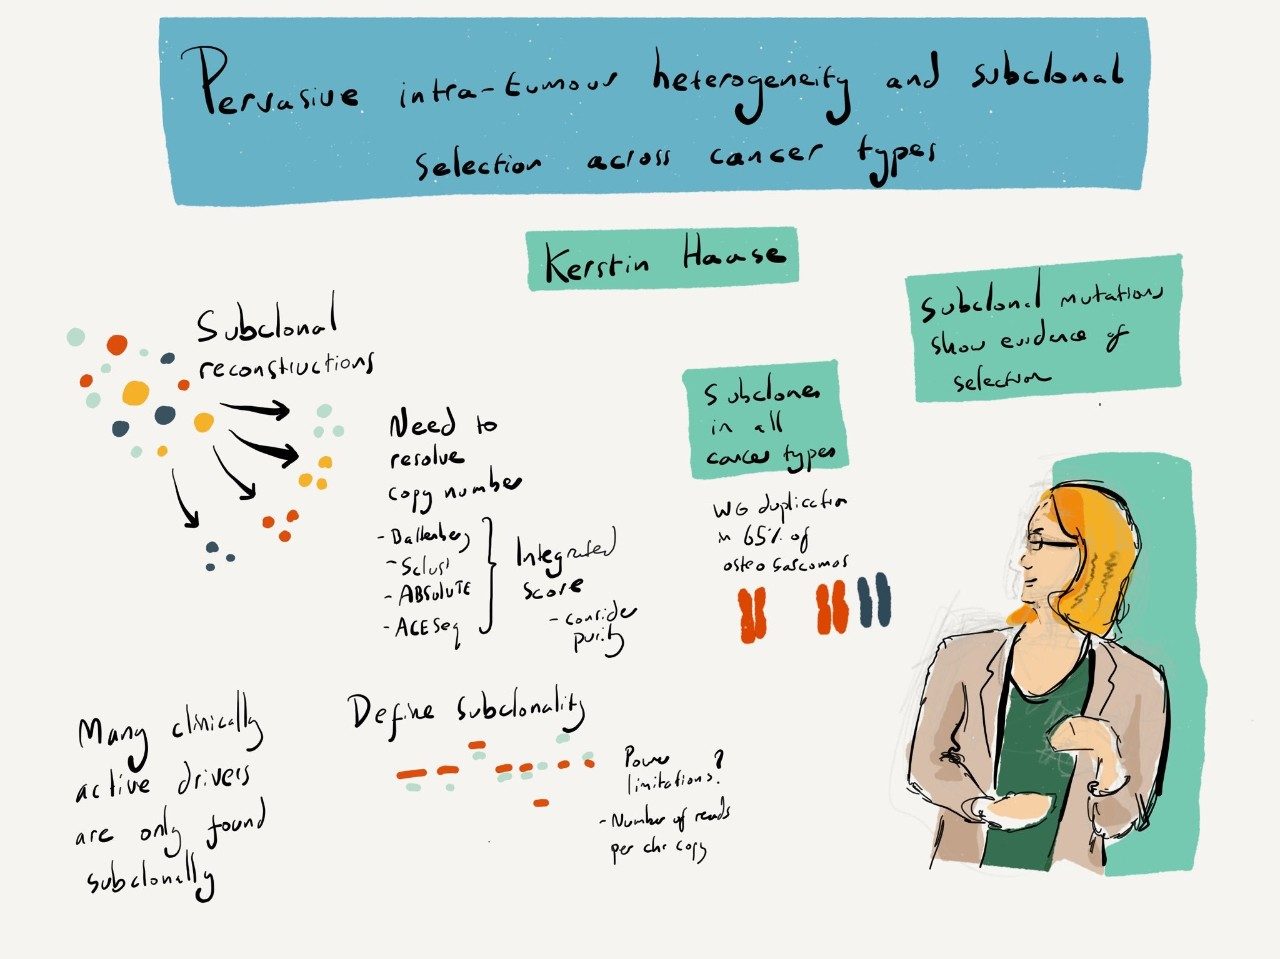 Pervasive intra-tumour heterogeneity and subclonal
selection across cancer types
Kerstin Haase
Subclonal
reconstructions
Need to
resolve
copy number
- Battenberg
- Sclust
- ABSOLUTE
- ACESeq
Integrated
score
- consider
purity
Subclones
in all
cancer types
WG duplication
in 65% of
osteosarcomas
Subclonal mutations
show evidence of
selection
Many clinically
active drivers
are only found
subclonally
Define subclonality
Power
limitations?
- Number of reads
per chr copy